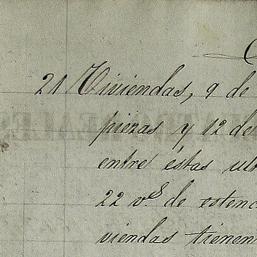 21 Viviendas, 9 de
piezas y 12 de
entre éstas ult
22 v.s de estenc
viendas tienen